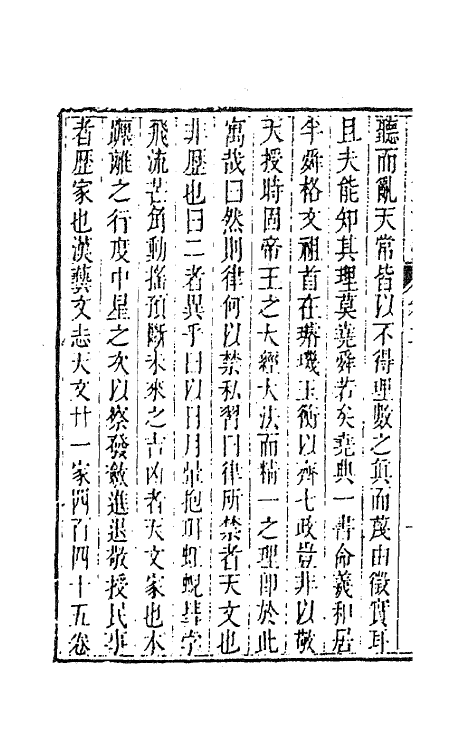 聽而亂天常皆以不得理數之眞而蔑由徵實耳
且夫能知其理莫堯舜若矣堯典一書命羲和居
半舜格文祖首在璿璣玉衡以齊七政豈非以敬
天授時固帝王之大經大法而精一之理卽於此
寓哉曰然則律何以禁私習曰律所禁者天文也
非歷也曰二者異乎曰以日月暈抱珥虹蜺彗孛
飛流芒角動搖預斷未來之吉凶者天文家也本
躔離之行度中星之次以察發斂進退敬授民事
者歷家也漢藝文志天文廿一家四百四十五卷